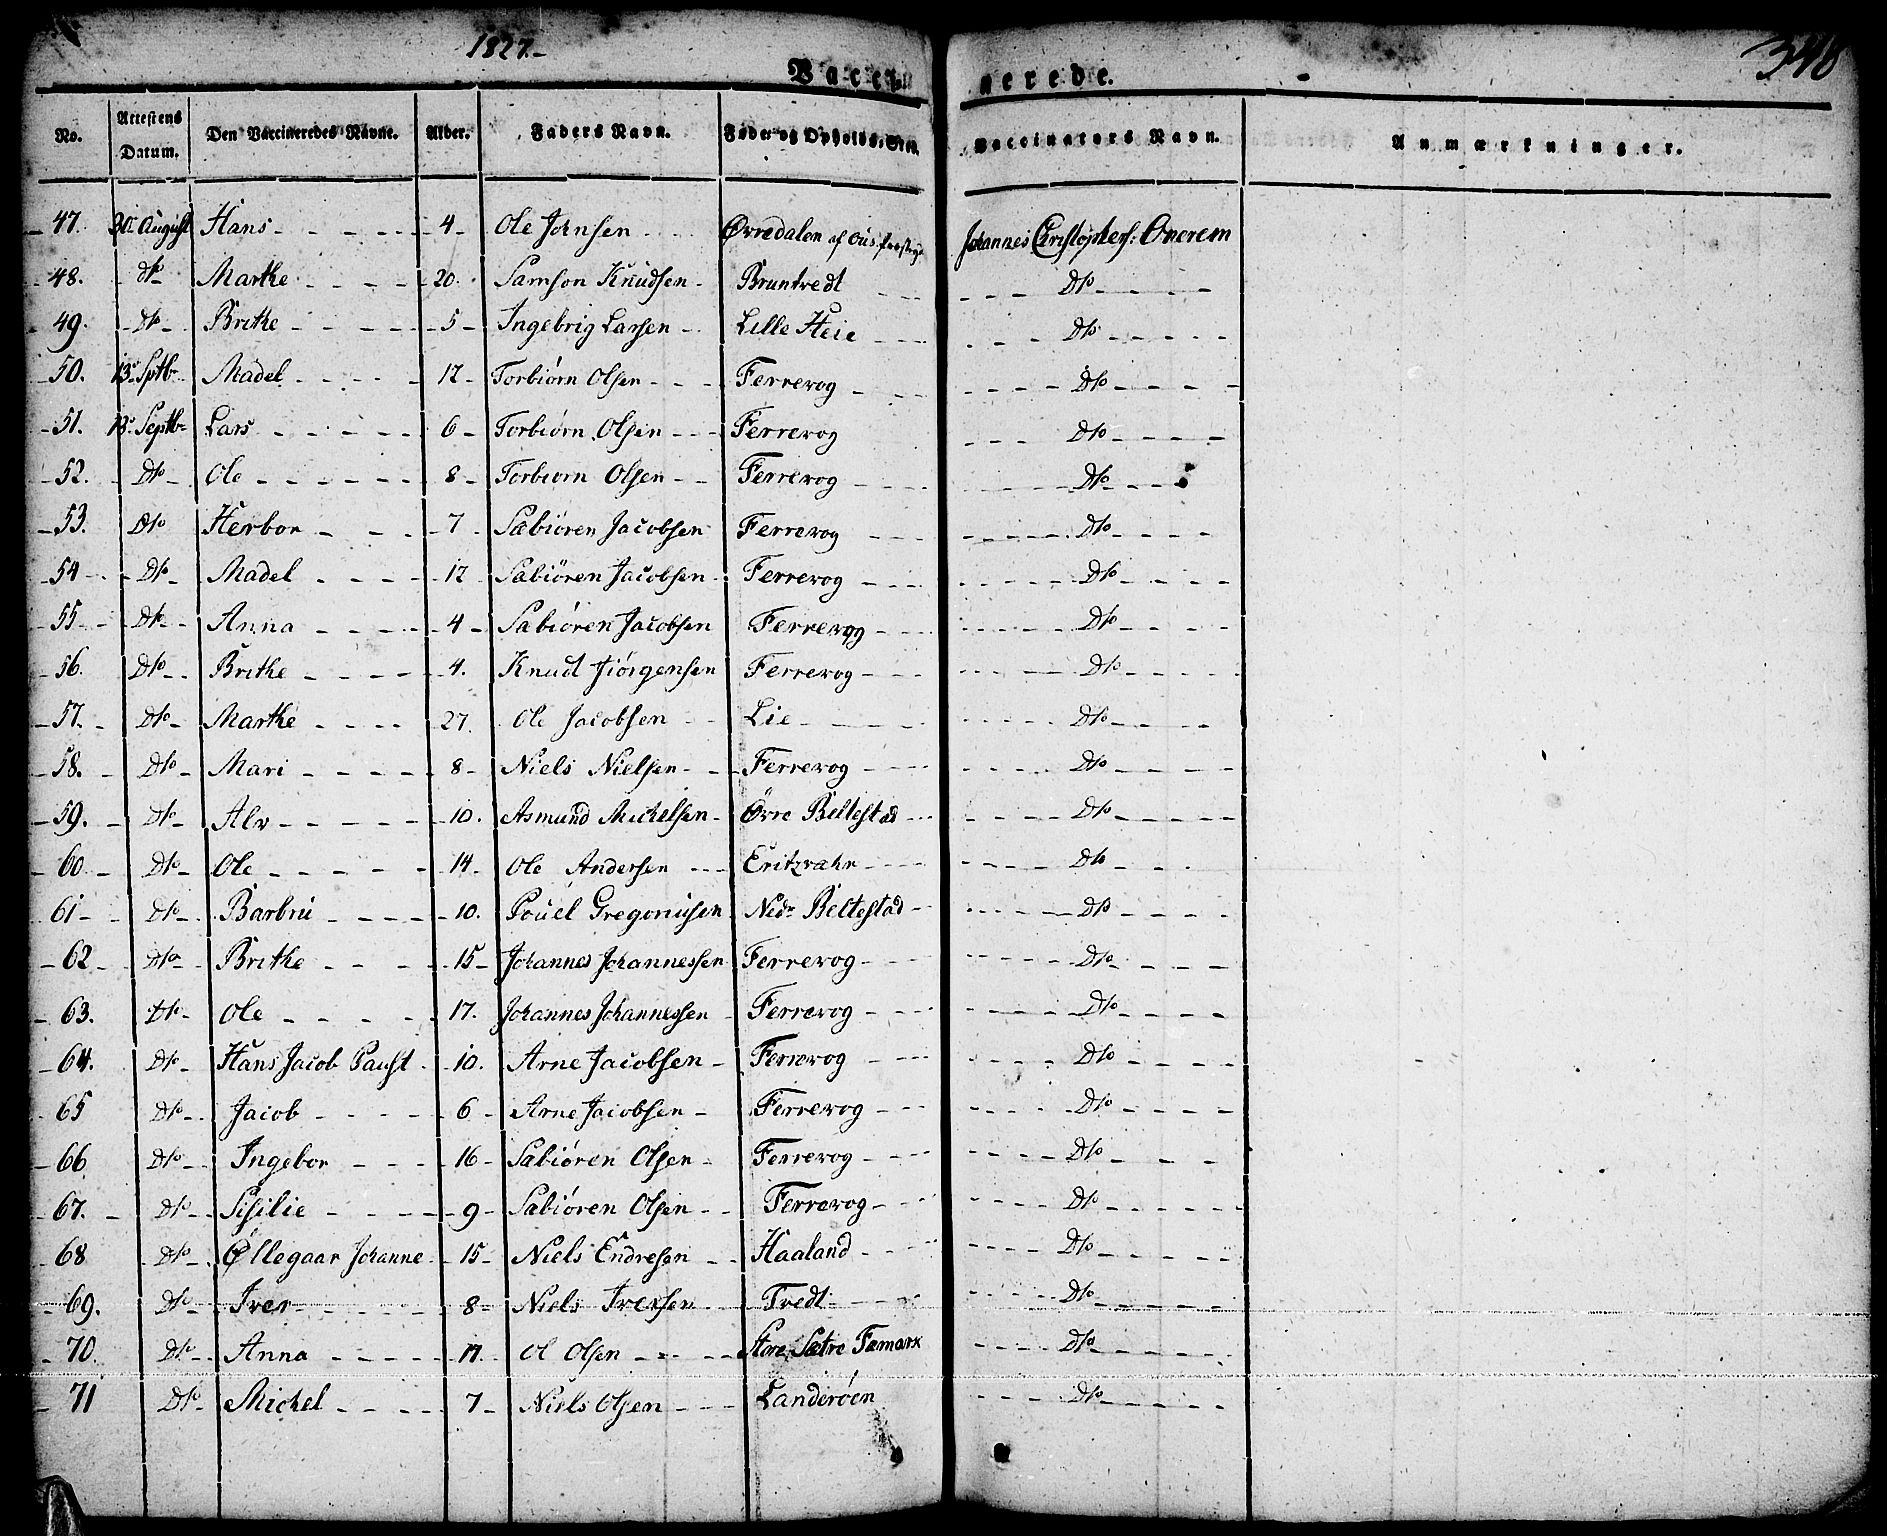 1827.
346
Vaccinerede.
No. Attestens Datum. Den Vaccineredes Navne. Alder. Faders Navn. Føde- og Opholds-Sted. Vaccinators Navn. Anmærkninger.
47. 30. August Hans 4 Ole Johnsen Øvredalen af Johannes Christophers: Onerem
48. Dto Marthe 20. Samson Knudsen Bruntvedt Dto
49. Dto Brithe 5 Ingebrig Larsen Lille Heie Dto
50. 13. Sptbr Madel 12 Torbiørn Olsen Ferrevog Dto
51. 13. Septbr Lars 6 Torbiørn Olsen Ferrevog Dto
52. Dto Ole 8 Torbiørn Olsen Ferrevog Dto
53. Dto Herbor 7 Sæbiören Jacobsen Ferrevog Dto
54 Dto Madel 12 Sæbiören Jacobsen Ferrevog Dto
55 Dto Anna 4 Sæbiören Jacobsen Ferrevog Dto
56. Dto Brithe 4. Knud Jiörgensen Ferrevog Dto
57. Dto Marthe 27. Ole Jacobsen Lie Dto
58. Dto Mari 8 Niels Nielsen Ferrevog Dto
59. Dto Alv 10. Asmund Michelsen Övre Beltestad Dto
60. Dto Ole 14 Ole Andersen Eritzvahr Dto
61 Dto Barbru 10. Pouel Gregoriusen Nedr Beltestad Dto
62 Dto Brithe 15 Johannes Johannessen Ferrevog Dto
63. Dto Ole 17. Johannes Johannessen Ferrevog Dto
64. Dto Hans Jacob Paust 10. Arne Jacobsen Ferrevog Dto
65 Dto Jacob 6 Arne Jacobsen Ferrevog Dto
66 Dto Ingebor 16 Sæbiören Olsen Ferrevog Dto
67. Dto Sisilie 9 Sæbiören Olsen Ferrevog Dto
68 Dto Øllegaar Johanne 15 Niels Endresen Haaland Dto
69. Dto Iver 8 Niels Iversen Tvedt Dto
70. Dto Anna 11. Ol Olsen Store Sætre Fæmark Dto
71 Dto Michel 7 Niels Olsen Landeröen Dto